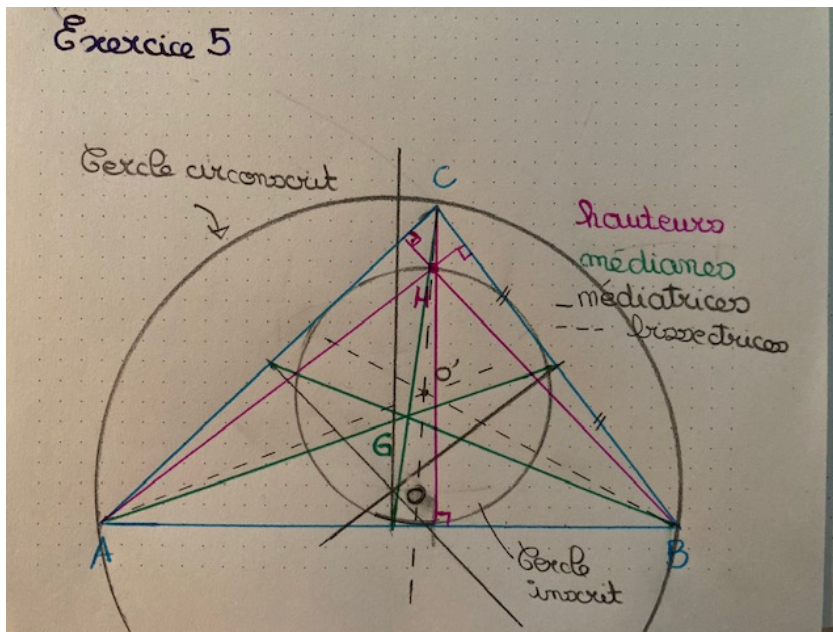 Exercice 5
Cercle circonscrit
C
hauteurs
médianes
_ médiatrices
--- bissectrices
H
O'
G
O
A
B
Cercle
inscrit